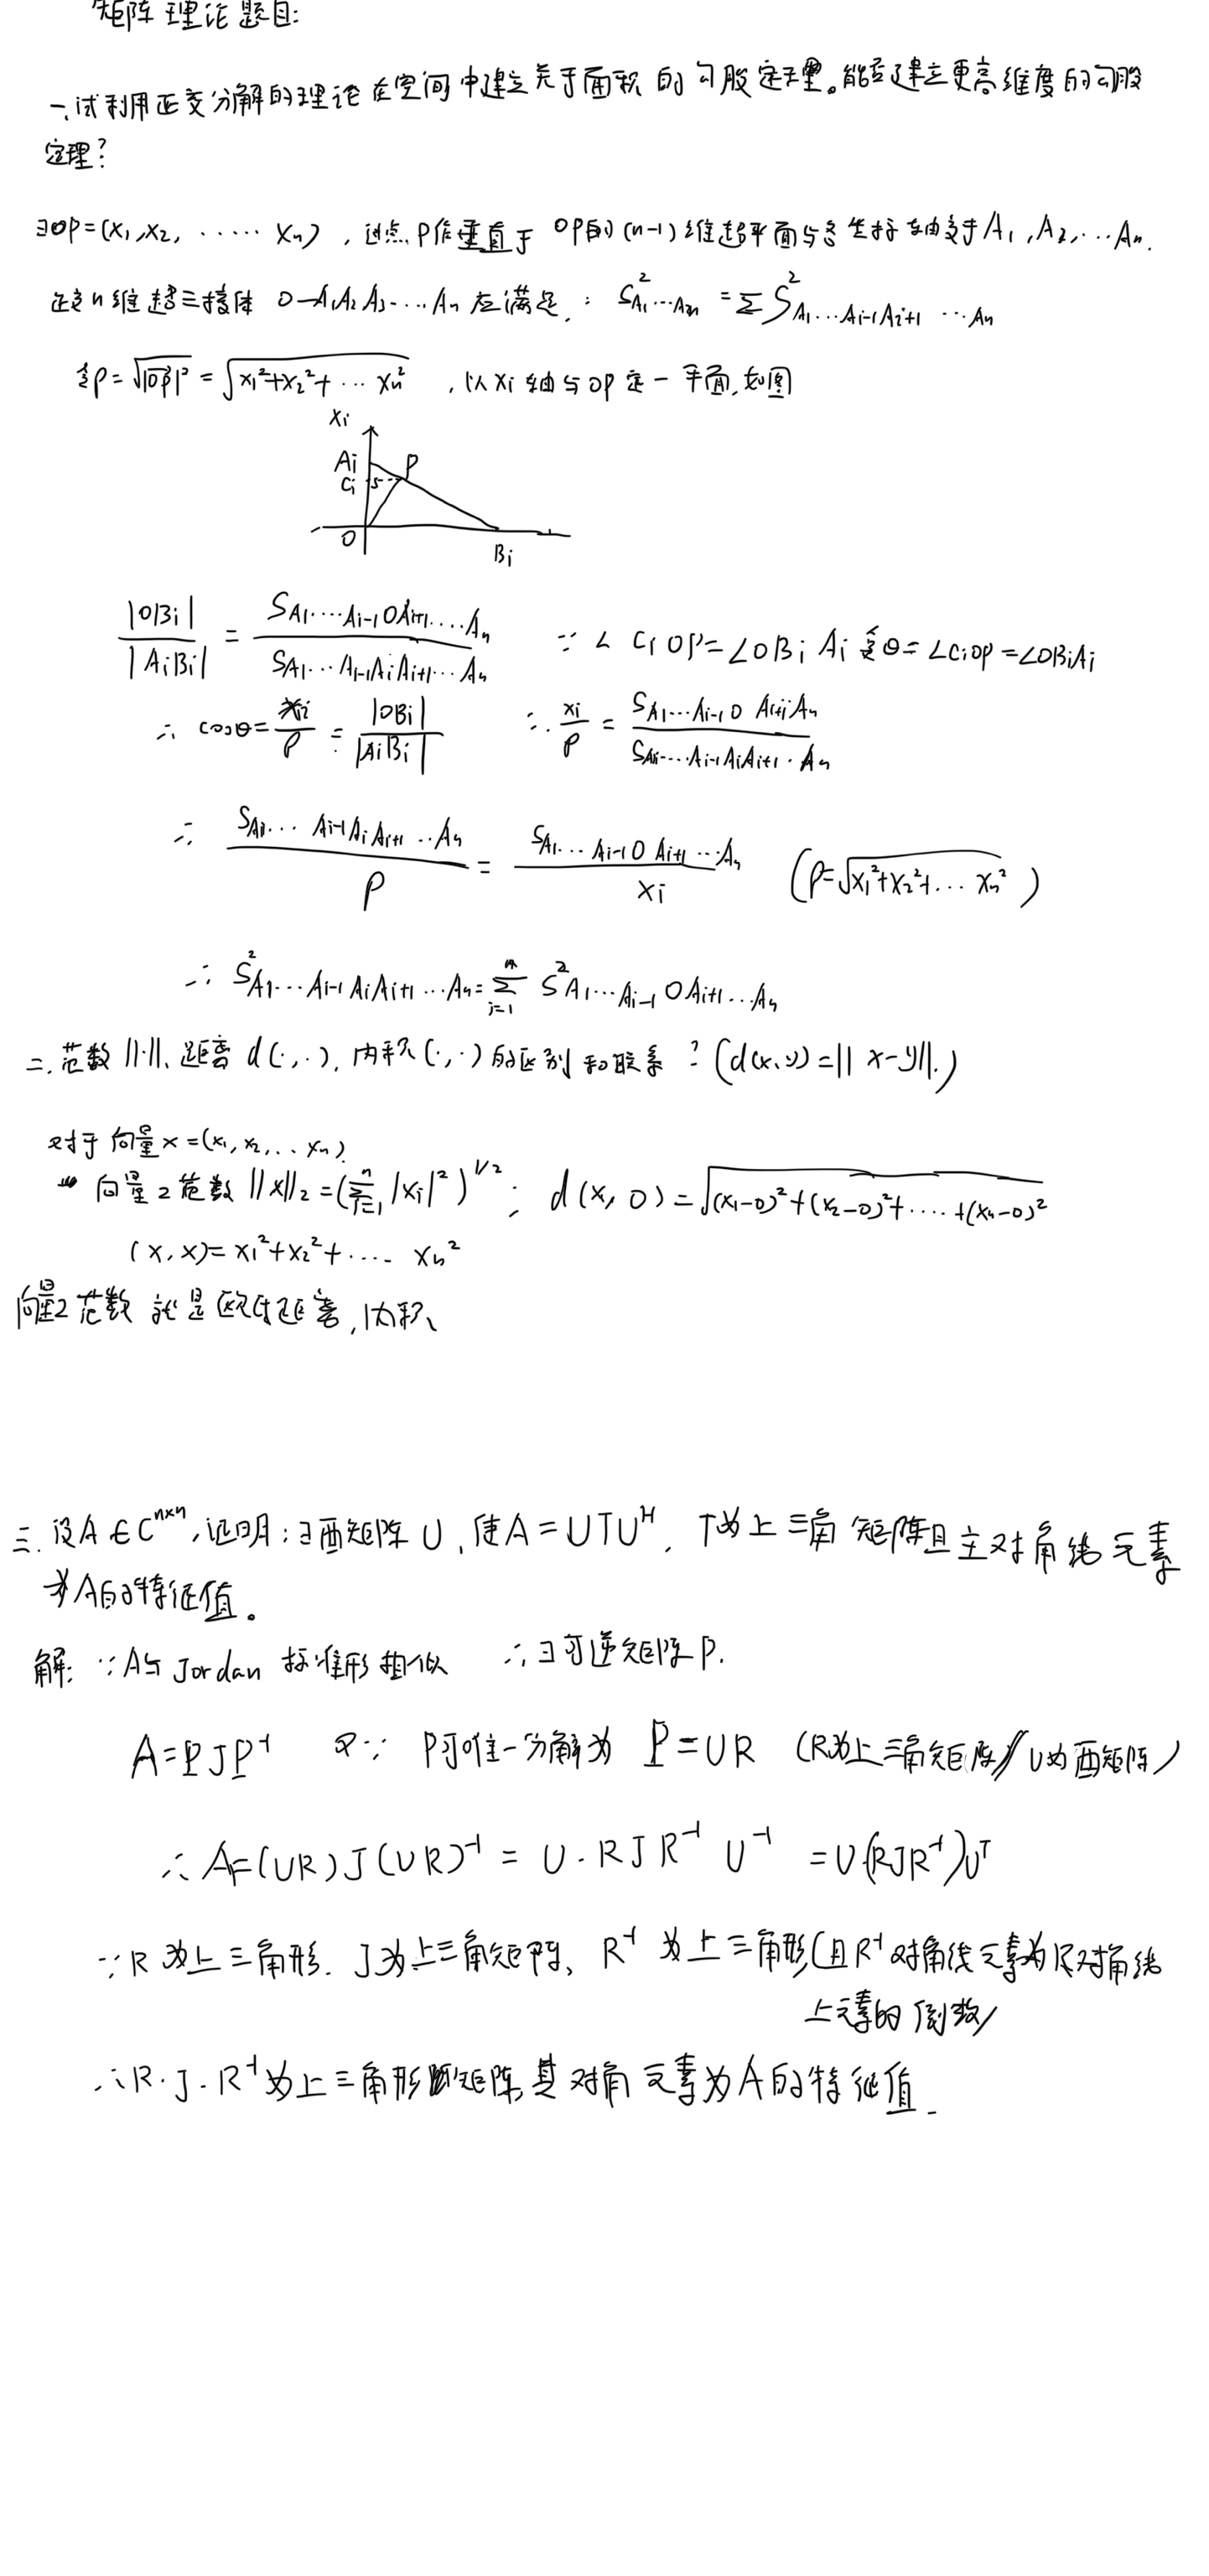 矩阵理论题目:
一、试利用正交分解的理论在空间中建立关于面积的勾股定理。能否建立更高维度的勾股
定理?
∃OP=(x₁,x₂,‥‥‥xₙ),过点P作垂直于OP的(n-1)维超平面与各坐标轴交于A₁,A₂,…Aₙ.
n维超三棱体 O-A₁A₂A₃-…Aₙ应满足: S²A₁…Aₙ = ΣS²A₁…Aᵢ₋₁Aᵢ₊₁…Aₙ
令ρ=√|OP|² = √x₁²+x₂²+…xₙ² ,以xᵢ轴与OP定一平面,如图
xᵢ
Aᵢ P
Cᵢ
O
Bᵢ
|OBᵢ|/|AᵢBᵢ| = SA₁…Aᵢ₋₁OAᵢ₊₁…Aₙ/SA₁…Aᵢ₋₁AᵢAᵢ₊₁…Aₙ ∵∠CᵢOP=∠OBᵢAᵢ 令θ=∠CᵢOP=∠OBᵢAᵢ
∴ cosθ= xᵢ/ρ = |OBᵢ|/|AᵢBᵢ| ∴ xᵢ/ρ = SA₁…Aᵢ₋₁OAᵢ₊₁Aₙ/SA₁…Aᵢ₋₁AᵢAᵢ₊₁·Aₙ
∴ SA₁…Aᵢ₋₁AᵢAᵢ₊₁…Aₙ/ρ = SA₁…Aᵢ₋₁OAᵢ₊₁…Aₙ/xᵢ (ρ=√x₁²+x₂²+…xₙ²)
∴ S²A₁…Aᵢ₋₁AᵢAᵢ₊₁…Aₙ=Σⁿᵢ₌₁ S²A₁…Aᵢ₋₁OAᵢ₊₁…Aₙ
二.范数||·||、距离d(·,·).内积(·,·)的区别和联系?(d(x,y)=||x-y||.)
对于向量x=(x₁,x₂,‥xₙ).
向量2范数||x||₂=(Σⁿᵢ₌₁|xᵢ|²)^1/2; d(x,0)=√(x₁-0)²+(x₂-0)²+‥‥+(xₙ-0)²
(x,x)=x₁²+x₂²+‥‥xₙ²
向量2范数就是欧氏距离,内积、
三.设A∈Cⁿˣⁿ,证明:∃酉矩阵U,使A=UTUᴴ,T为上三角矩阵且主对角线元素
为A的特征值。
解:∵A与Jordan标准形相似 ∴∃可逆矩阵P.
A=PJP⁻¹ 又∵ P可唯一分解为 P=UR (R为上三角矩阵//U为酉矩阵)
∴A=(UR)J(UR)⁻¹=U·RJR⁻¹U⁻¹=U(RJR⁻¹)Uᵀ
∵R为上三角形.J为上三角矩阵、R⁻¹为上三角形(且R⁻¹对角线元素为R对角线
上元素的倒数)
∴R·J·R⁻¹为上三角形矩阵,其对角元素为A的特征值.